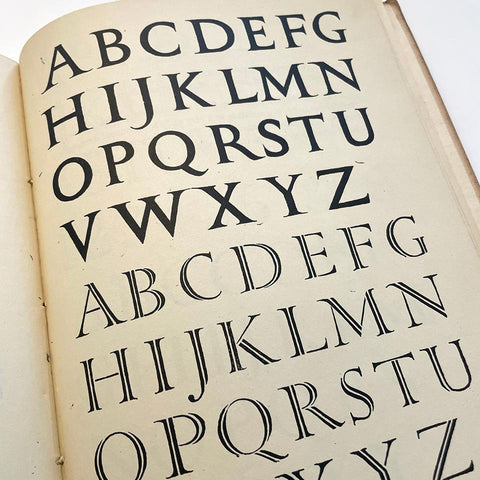 ABCDEFG
HIJKLMN
OPQRSTU
VWXYZ
ABCDEFG
HIJKLMN
OPQRSTU
XYZ